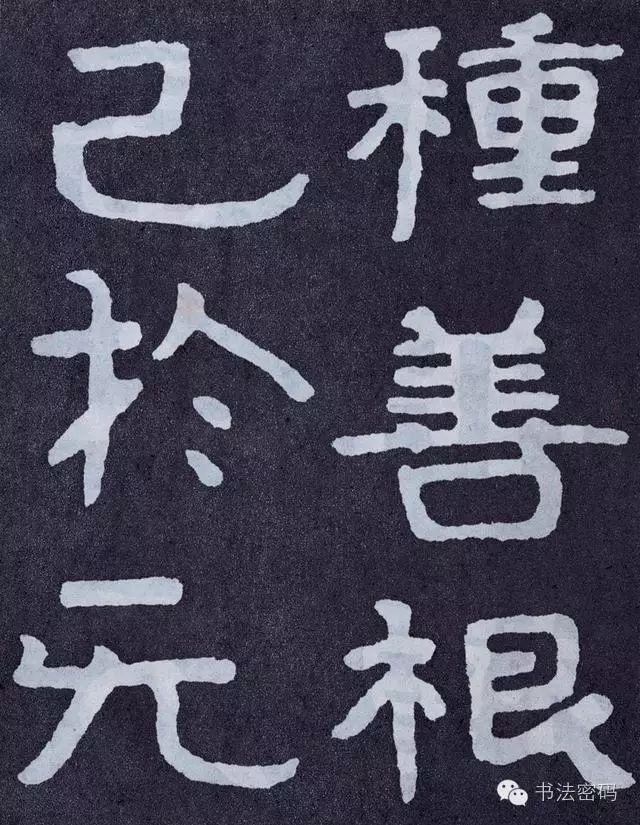 種善根
已於无
书法密码